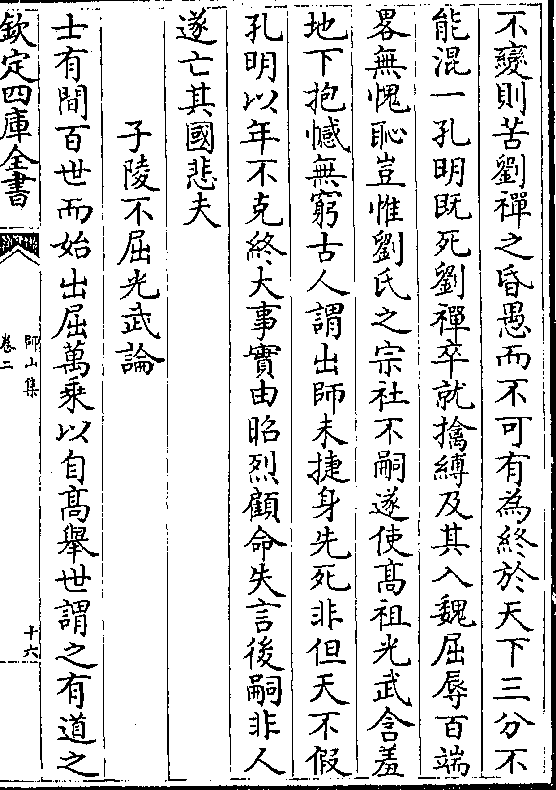 不變則苦劉禪之昏愚而不可有為終於天下三分不
能混一孔明既死劉禪卒就擒縛及其入魏屈辱百端
畧無愧恥豈惟劉氏之宗社不嗣遂使髙祖光武含羞
地下抱憾無窮古人謂出師未捷身先死非但天不假
孔明以年不克終大事實由昭烈顧命失言後嗣非人
遂亡其國悲夫
子陵不屈光武論
士有間百世而始出屈萬乘以自髙舉世謂之有道之
欽定四庫全書
師山集
卷二
十六